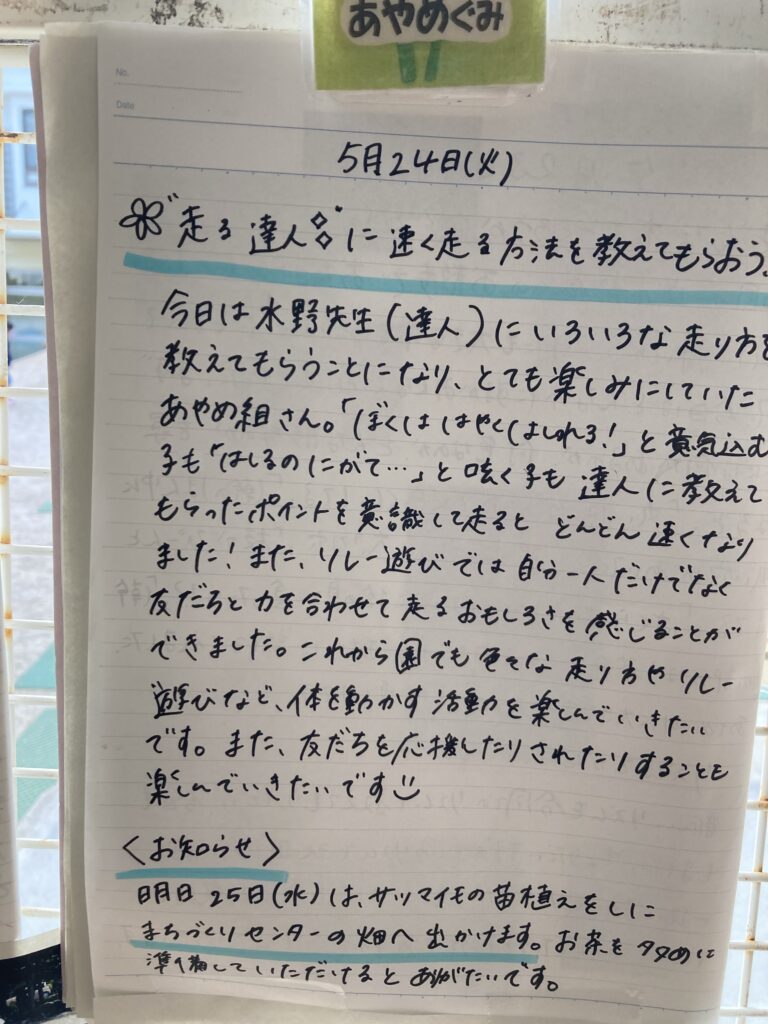 あやめぐみ
No.
Date
5月24日(火)
"走る達人"に速く走る方法を教えてもらおう。
今日は水野先生(達人)にいろいろな走り方を
教えてもらうことになり、とても楽しみにしていた
あやめ組さん。「ぼくははやくはしれる!」と意気込む
子も「はしるのにがて…」と呟く子も達人に教えて
もらったポイントを意識して走ると どんどん速くなり
ました!また、リレー遊びでは自分一人だけでなく
友だちと力を合わせて走るおもしろさを感じることが
できました。これから園でも色々な走り方やリレー
遊びなど、体を動かす活動を楽しんでいきたい
です。また、友だちを応援したりされたりすることも
楽しんでいきたいです
〈お知らせ〉
明日 25日(水)は、サツマイモの苗植えをしに
まちづくりセンターの畑へ出かけます。お茶を多めに
準備していただけるとありがたいです。